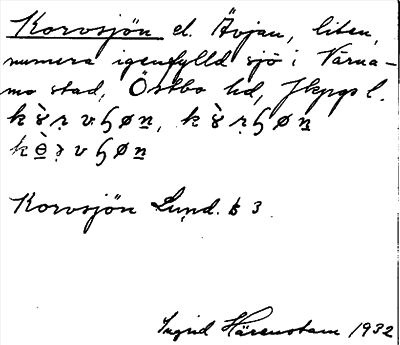 Korvsjön el. Åvjan, liten,
numera igenfylld sjö i Värna-
mo stad, Östbo hd, Jkpgs l.
Korvsjön Lund. b 3
Ingrid Härenstam 1932